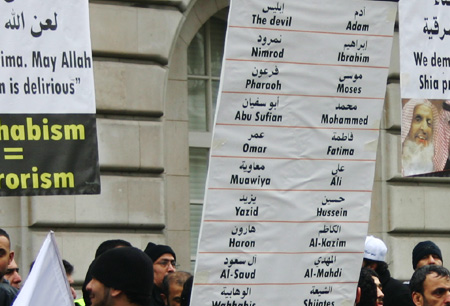 لعن الله
ima. May Allah
n is delirious"
nabism
=
rorism
ابليس آدم
The devil Adam
نمرود إبراهيم
Nimrod Ibrahim
فرعون موسى
Pharaoh Moses
أبو سفيان محمد
Abu Sufian Mohammed
عمر فاطمة
Omar Fatima
معاوية علي
Muawiya Ali
يزيد حسين
Yazid Hussein
هارون الكاظم
Haron Al-Kazim
آل سعود المهدي
Al-Saud Al-Mahdi
الوهابية الشيعة
Wahhabis Shiites
رقية
We dem
Shia pr